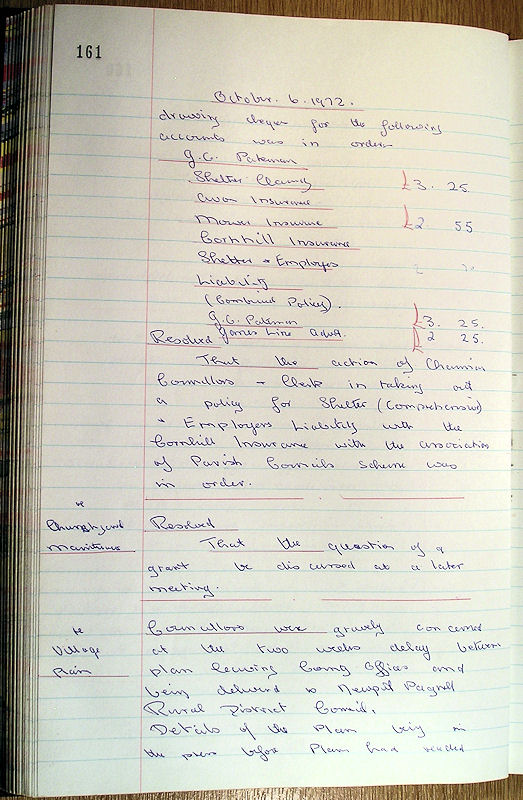 161
October. 6. 1972.
drawing cheques for the following
accounts was in order
G.C. Pateman
Shelter Cleaning £3. 25.
Avon Insurance
Mower Insurance £2 55
Cornhill Insurance
Shelter + Employers
Liability
(Combined Policy).
G.C. Pateman £3. 25.
James Line 2 25.
Resolved
That the action of Chairman
Councillors + Clerk in taking out
a policy for Shelter (Comprehensive)
+ Employers Liability with the
Cornhill Insurance with the association
of Parish Councils Scheme was
in order.
re
Churchyard
Maintenance
Resolved
That the question of a
grant be discussed at a later
meeting.
re
Village
Plan
Councillors were gravely concerned
at the two weeks delay between
plan leaving County Offices and
being delivered to Newport Pagnell
Rural District Council.
Details of the Plan being in
the press before Plan had reached